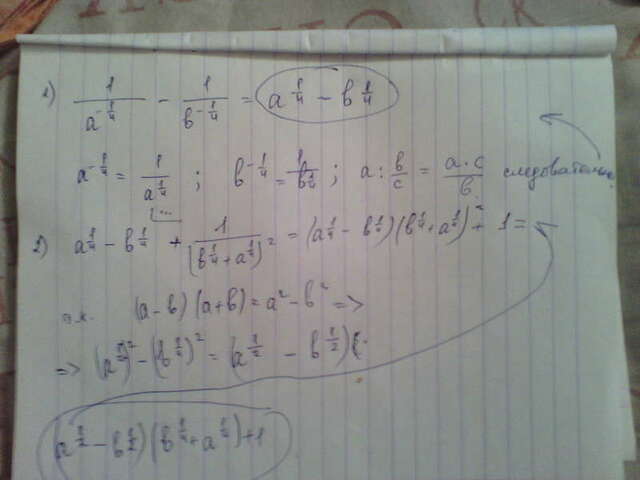 1) 1/a^(-1/4) - 1/b^(-1/4) = a^(1/4) - b^(1/4)
a^(-1/4) = 1/a^(1/4) ; b^(-1/4) = 1/b^(1/4) ; a : b/c = a·c/b следовательно
2) a^(1/4) - b^(1/4) + 1/(b^(1/4) + a^(1/4))^2 = (a^(1/4) - b^(1/4))(b^(1/4) + a^(1/4))^2 + 1 =
т.к. (a-b)(a+b) = a^2 - b^2 =>
=> (a^(1/4))^2 - (b^(1/4))^2 = (a^(1/2) - b^(1/2))(
(a^(1/2) - b^(1/2))(b^(1/4) + a^(1/4)) + 1